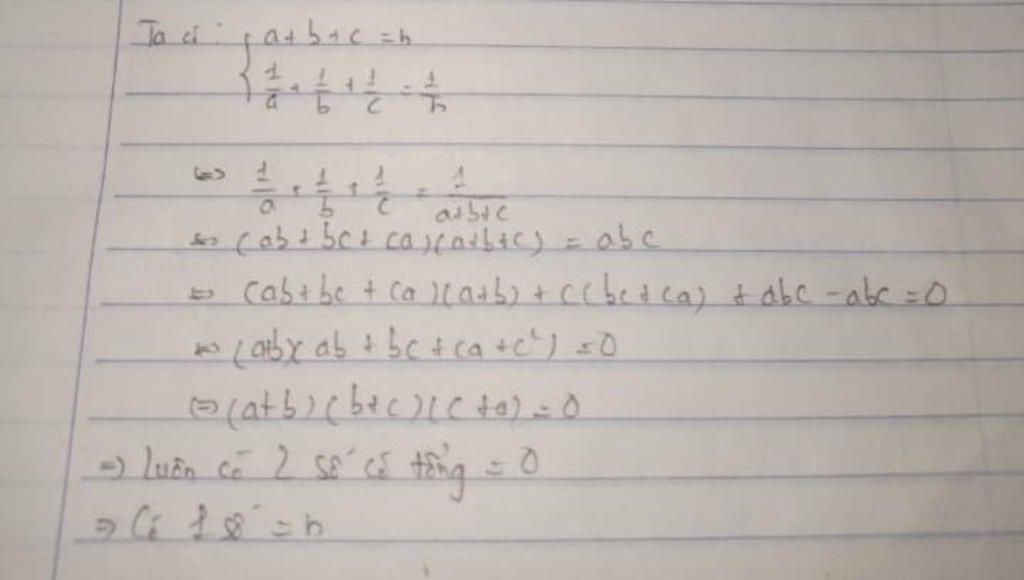 Ta có: { a + b + c = n
1/a + 1/b + 1/c = 1/n
<=> 1/a + 1/b + 1/c = 1/(a+b+c)
<=> (ab + bc + ca)(a+b+c) = abc
<=> (ab + bc + ca)(a+b) + c(bc+ca) + abc - abc = 0
<=> (a+b)(ab + bc + ca + c²) = 0
<=> (a+b)(b+c)(c+a) = 0
=> luôn có 2 số có tổng = 0
=> Có 1 số = n